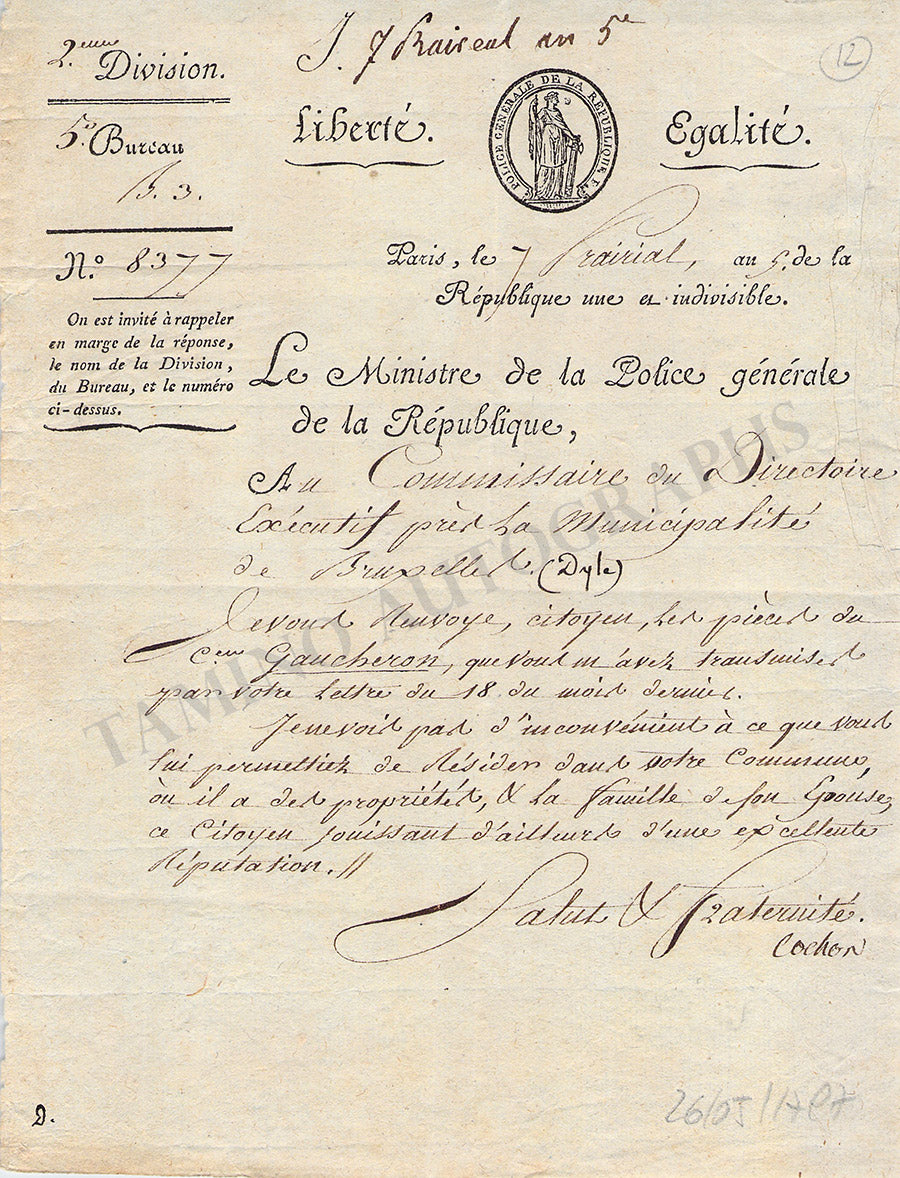 2.eme Division.
J. 7 Prairial an 5e
12
Liberté.
POLICE GÉNÉRALE DE LA RÉPUBLIQUE F.
Egalité.
5e Bureau
B. 3.
N.o 8377
Paris, le 7 Prairial, an 5. de la
République une et indivisible.
On est invité à rappeler
en marge de la réponse,
le nom de la Division,
du Bureau, et le numéro
ci-dessus.
Le Ministre de la Police générale
de la République,
Au Commissaire du Directoire
Exécutif près la Municipalité
de Bruxelles. (Dyle)
Je vous Renvoye, citoyen, les pièces du
Cen Gaucheron, que vous m'avez transmises
par votre Lettre du 18 du mois dernier.
Je ne vois pas d'inconvénient à ce que vous
lui permettiez de Résider dans votre Commune,
où il a des propriétés, & la famille de son Epouse,
ce Citoyen jouissant d'ailleurs d'une excellente
Réputation. //
Salut & Fraternité.
Cochon
D.
26/05/1797
TAMINO AUTOGRAPHS